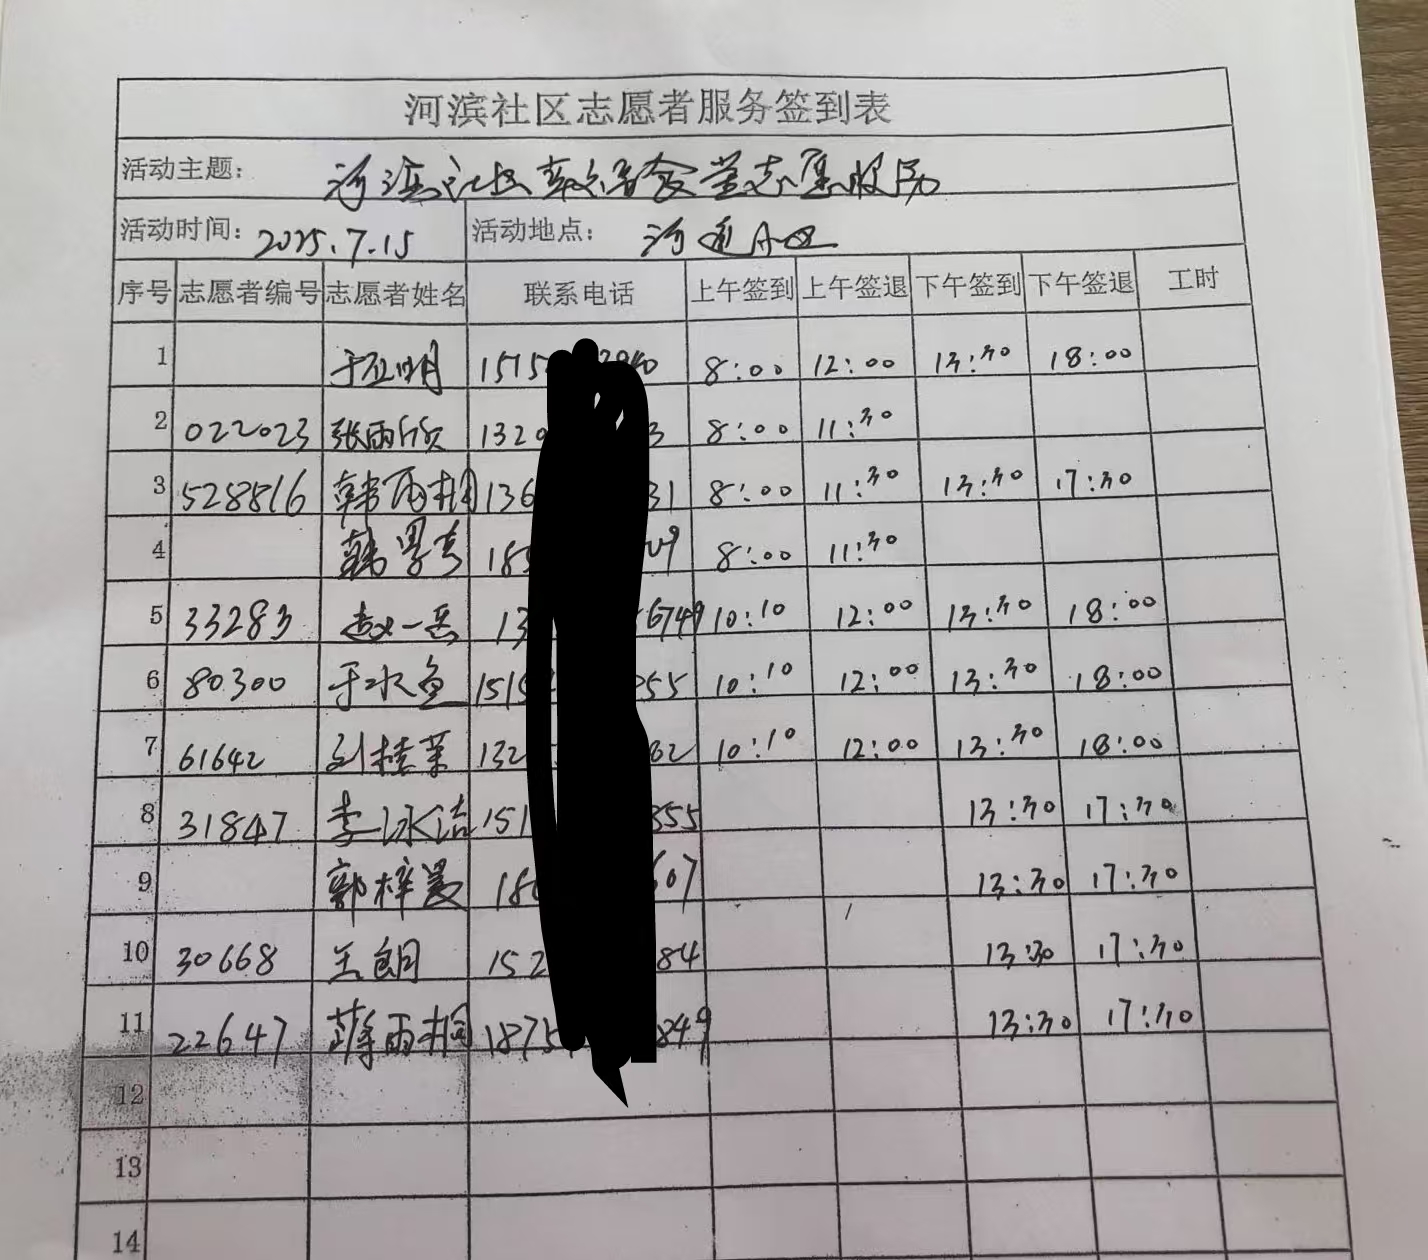 河滨社区志愿者服务签到表
活动主题： 河滨社区 食堂志愿服务
活动时间：2025.7.15 活动地点： 河通A区
序号 志愿者编号 志愿者姓名 联系电话 上午签到 上午签退 下午签到 下午签退 工时
1 于 明 1515 8:00 12:00 13:30 18:00
2 022023 张雨欣 132 3 8:00 11:30
3 528816 韩雨桐 136 31 8:00 11:30 13:30 17:30
4 韩 18 09 8:00 11:30
5 33283 赵一 13 6749 10:10 12:00 13:30 18:00
6 80300 于水鱼 1515 255 10:10 12:00 13:30 18:00
7 61642 刘桂荣 132 62 10:10 12:00 13:30 18:00
8 31847 李泳洁 151 355 13:30 17:30
9 郭梓 18 607 13:30 17:30
10 30668 王朗 152 84 13:30 17:30
11 22647 薛雨桐 1875 849 13:30 17:30
12
13
14